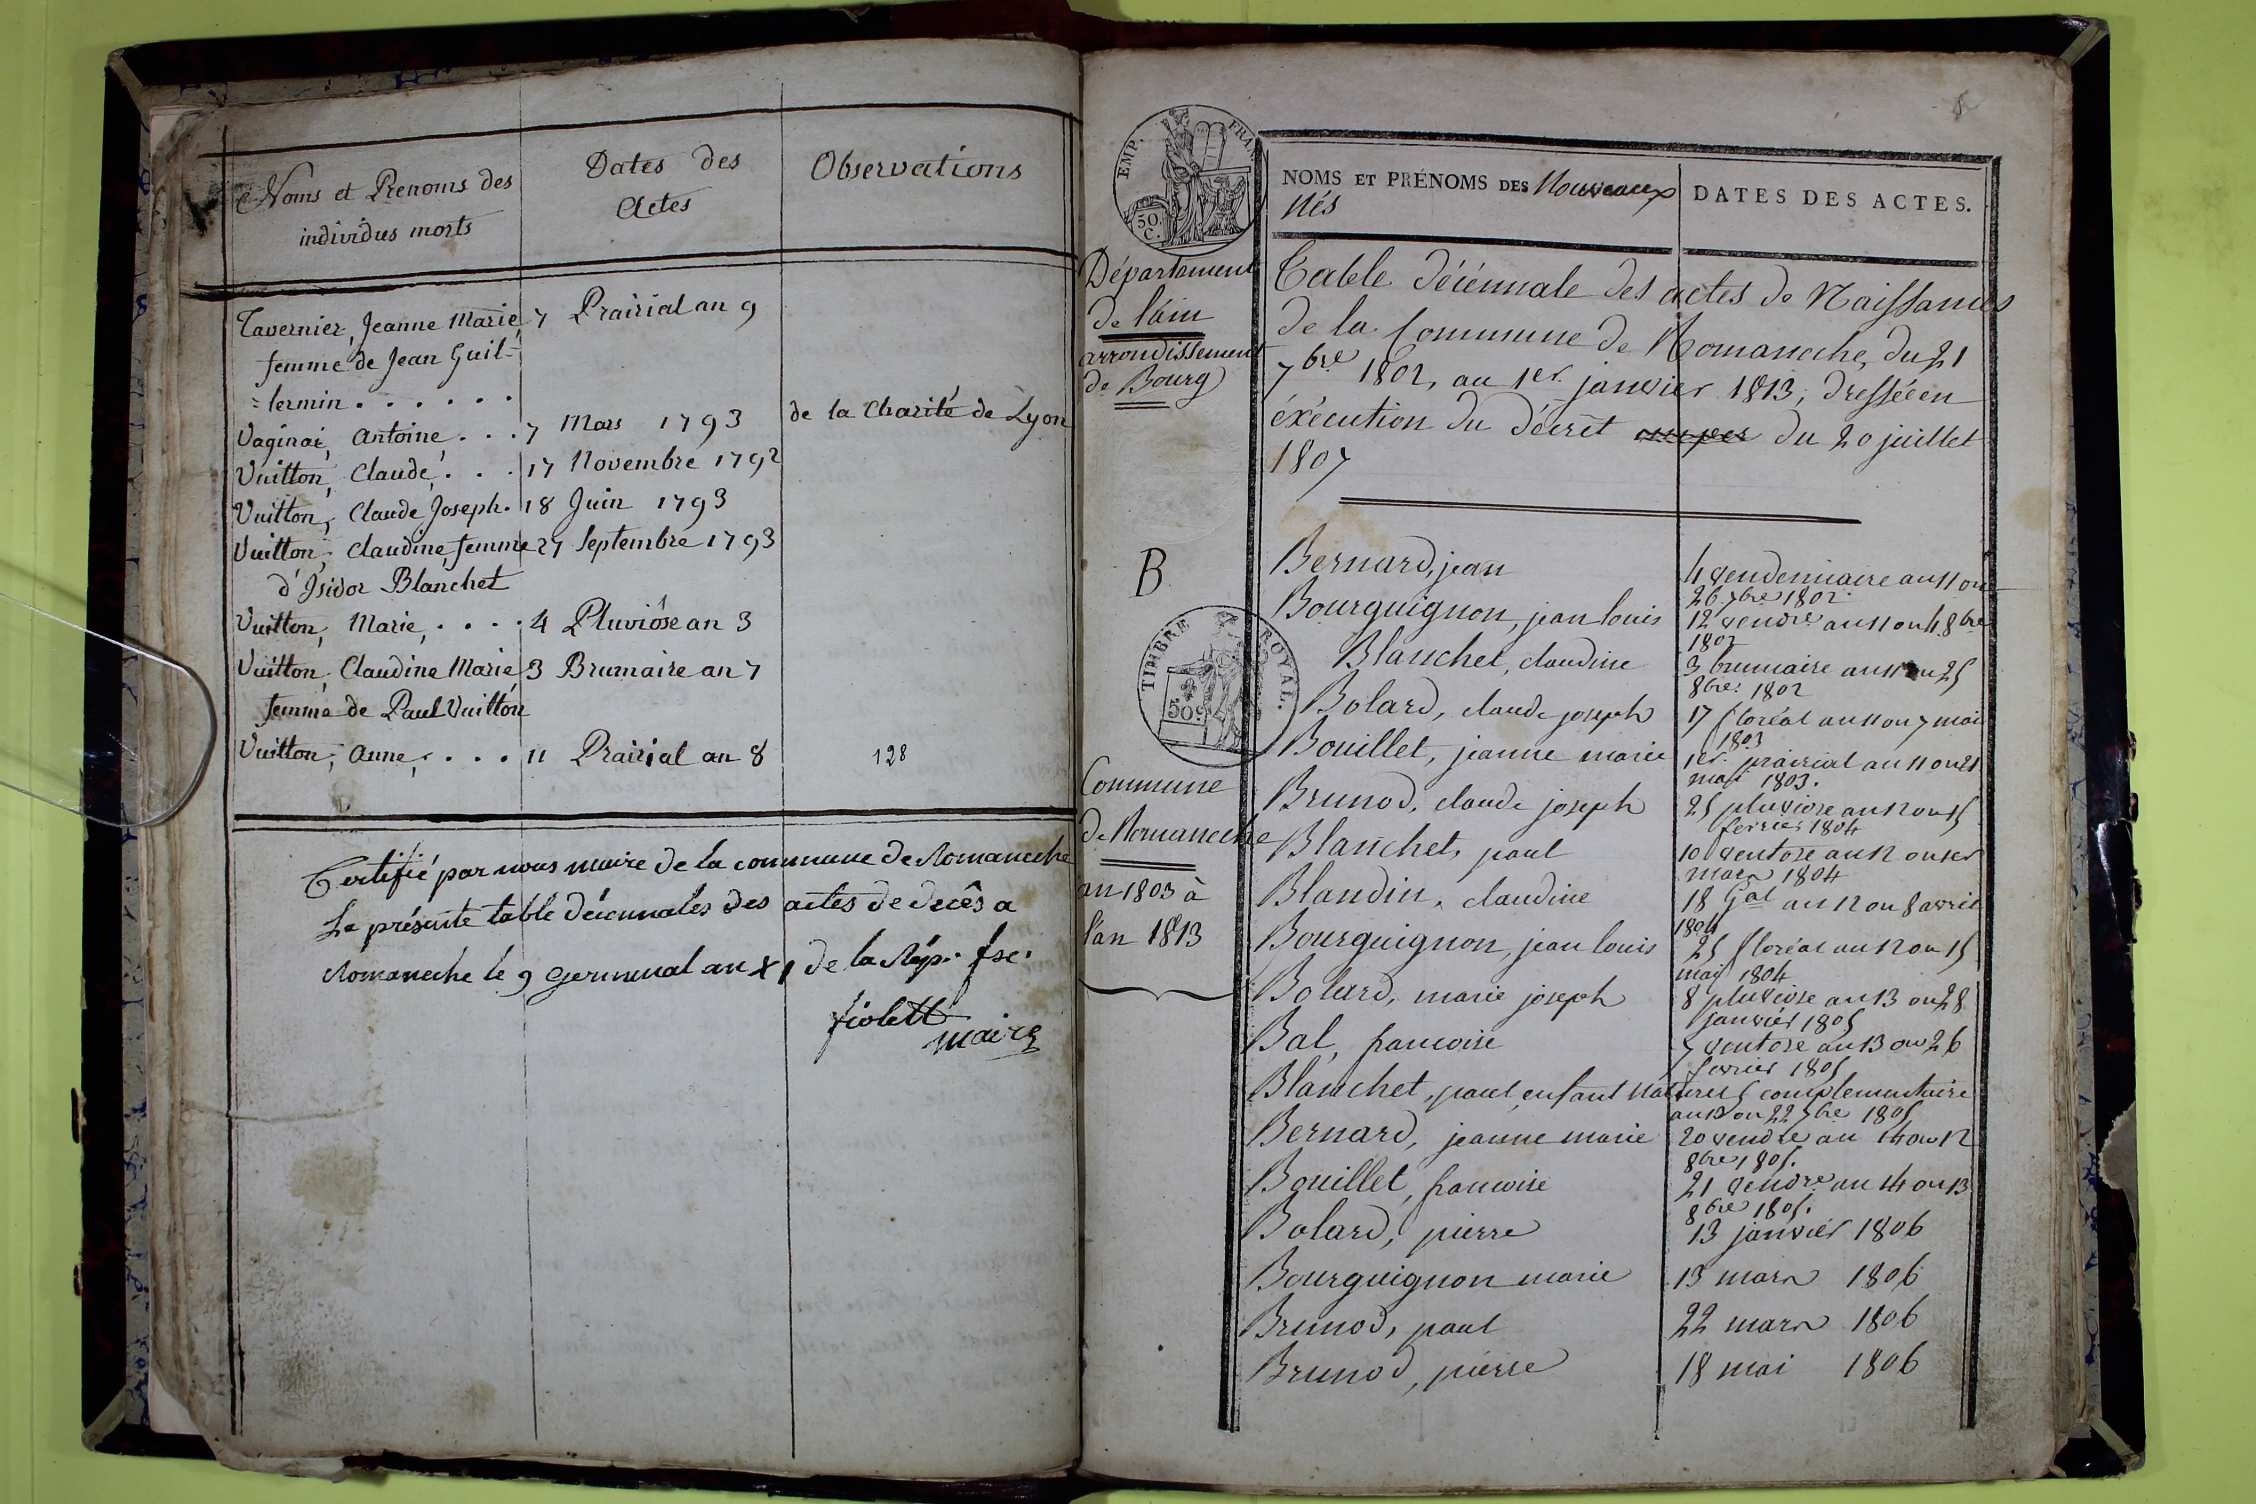 Noms et Prenoms des
individus morts
Dates des
Actes
Observations
Tavernier, Jeanne Marie 7 Prairial an 9
femme de Jean Guil-
=lermin . . . . . .
Vaginai, Antoine . . . 7 Mars 1793 de la Charité de Lyon
Vuitton, Claude, . . . 17 Novembre 1792
Vuitton, Claude Joseph. 18 Juin 1793
Vuitton, Claudine, femme 27 Septembre 1793
d'Isidor Blanchet
Vuitton, Marie, . . . . 4 Pluviôse an 3
Vuitton, Claudine Marie 3 Brumaire an 7
femme de Paul Vuitton
Vuitton, Anne, . . . . 11 Prairial an 8 128
Certifié par nous maire de la commune de Romaneche
La présente table décennales des actes de decês a
Romaneche le 9 germinal an XI de la Rép. fse.
fiolett
maire
EMP. FRAN
50.
C.
NOMS ET PRÉNOMS DES Nouveaux
Nés
DATES DES ACTES.
Département
de l'ain
arrondissement
de Bourg
Table décénnale des actes de Naissances
de la Commune de Romaneche, du 21
7bre 1802, au 1er janvier 1813, dressée en
éxécution du décret du 20 juillet
1807
B
TIMBRE ROYAL.
50c
Commune
de Romaneche
an 1803 à
l'an 1813
Bernard, jean 4 vendemiaire an 11 ou
26 7bre 1802.
Bourguignon, jean louis 12 vendre an 11 ou 4 8bre
1802
Blanchet, claudine 3 brumaire an 11 ou 25
8bre 1802
Bolard, claude joseph 17 floréal an 11 ou 7 mai
1803
Bouillet, jeanne marie 1er prairial an 11 ou 21
mai 1803.
Brunod, claude joseph 25 pluviose an 12 ou 15
fevrier 1804
Blanchet, paul 10 ventose an 12 ou 1er
mars 1804
Blandin, claudine 18 Gal an 12 ou 8 avril
1804
Bourguignon, jean louis 25 floréal an 12 ou 15
mai 1804
Bolard, marie joseph 8 pluviose an 13 ou 28
janvier 1805
Bal, francoise 7 ventose an 13 ou 26
fevrier 1805
Blanchet, paul, enfant naturel 5 complementaire
an 13 ou 22 7bre 1805
Bernard, jeanne marie 20 vendre an 14 ou 12
8bre 1805.
Bouillet, francoise 21 vendre an 14 ou 13
8bre 1805.
Bolard, pierre 13 janvier 1806
Bourguignon marie 13 mars 1806
Brunod, paul 22 mars 1806
Brunod, pierre 18 mai 1806